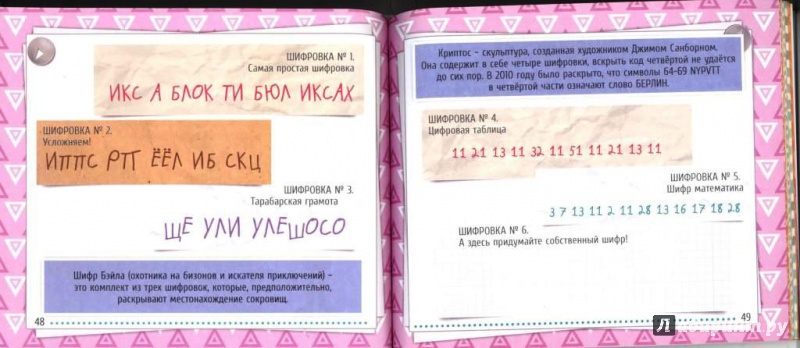 ШИФРОВКА № 1.
Самая простая шифровка
ИКС А БЛОК ТИ БЮЛ ИКСАХ
ШИФРОВКА № 2.
Усложняем!
ИППС РТП ЁЁЛ ИБ СКЦ
ШИФРОВКА № 3.
Тарабарская грамота
ЩЕ УЛИ УЛЕШОСО
Шифр Бэйла (охотника на бизонов и искателя приключений) –
это комплект из трех шифровок, которые, предположительно,
раскрывают местонахождение сокровищ.
48
Криптос – скульптура, созданная художником Джимом Санборном.
Она содержит в себе четыре шифровки, вскрыть код четвёртой не удаётся
до сих пор. В 2010 году было раскрыто, что символы 64-69 NYPVTT
в четвёртой части означают слово БЕРЛИН.
ШИФРОВКА № 4.
Цифровая таблица
11 21 13 11 32 11 51 11 21 13 11
ШИФРОВКА № 5.
Шифр математика
3 7 13 11 2 11 28 13 16 17 18 28
ШИФРОВКА № 6.
А здесь придумайте собственный шифр!
49